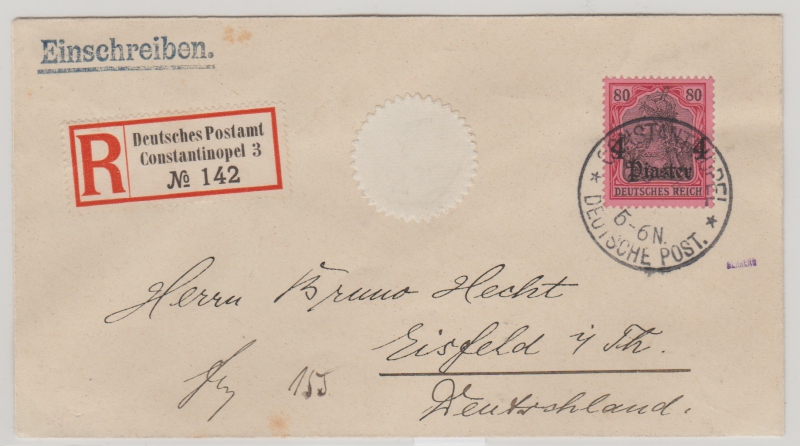 Einschreiben.
R
Deutsches Postamt
Constantinopel 3
No 142
80 80
4 4
Piaster
DEUTSCHES REICH
5-6N.
DEUTSCHE POST.
Herrn Bruno Hecht
Eisfeld i/Th.
155
Deutschland.